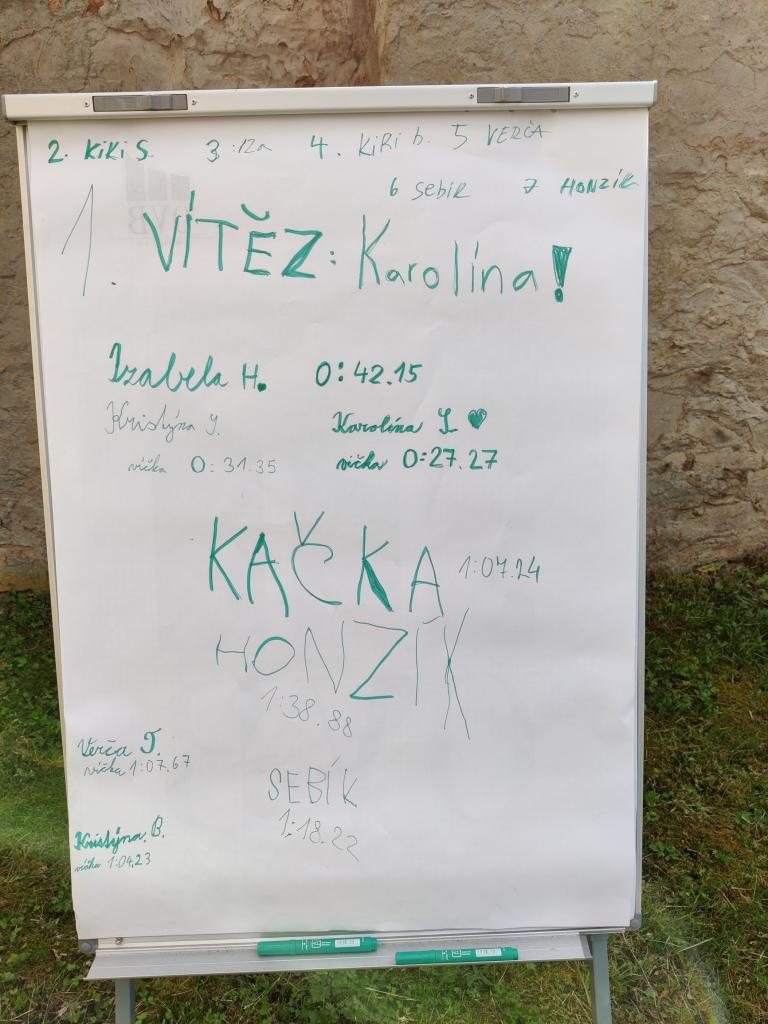 2. KiKi S. 3 :12a 4. KiRi b. 5 VERČA
6 sebík 7 HONZÍK
1. VÍTĚZ: Karolína!
Izabela H. 0:42.15
Kristýna Karolína
víčka 0:31.35 víčka 0:27.27
KAČKA 1:07.24
HONZÍK
1:38.88
Verča T.
víčka 1:07.67
SEBÍK
1:18.22
Kristýna. B.
víčka 1:04.23